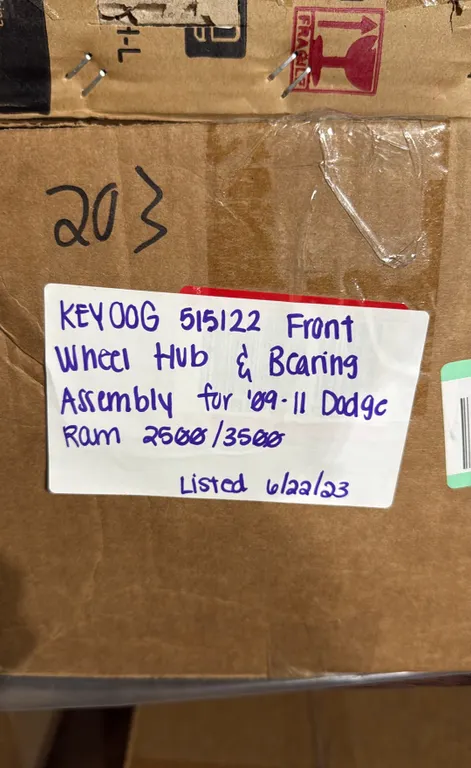 H-L
FRAGILE
203
KEYOOG 515122 Front
Wheel Hub & Bearing
Assembly for '09-11 Dodge
Ram 2500/3500
Listed 6/22/23